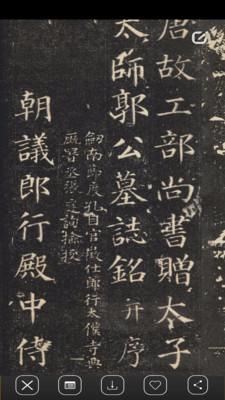 唐故工部尚書贈太子
太師郭公墓誌銘 并序
劒南節度孔目官徵仕郎行太僕寺典
廐署丞張文詢檢校
朝議郎行殿中侍